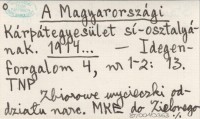 A Magyarországi
Kárpátegyesület sí-osztályá-
nak. 1914... — Idegen-
forgalom 4, nr 1-2: 13.
TNP
Zbiorowe wycieczki od-
działu narc. MKE do Zielonego